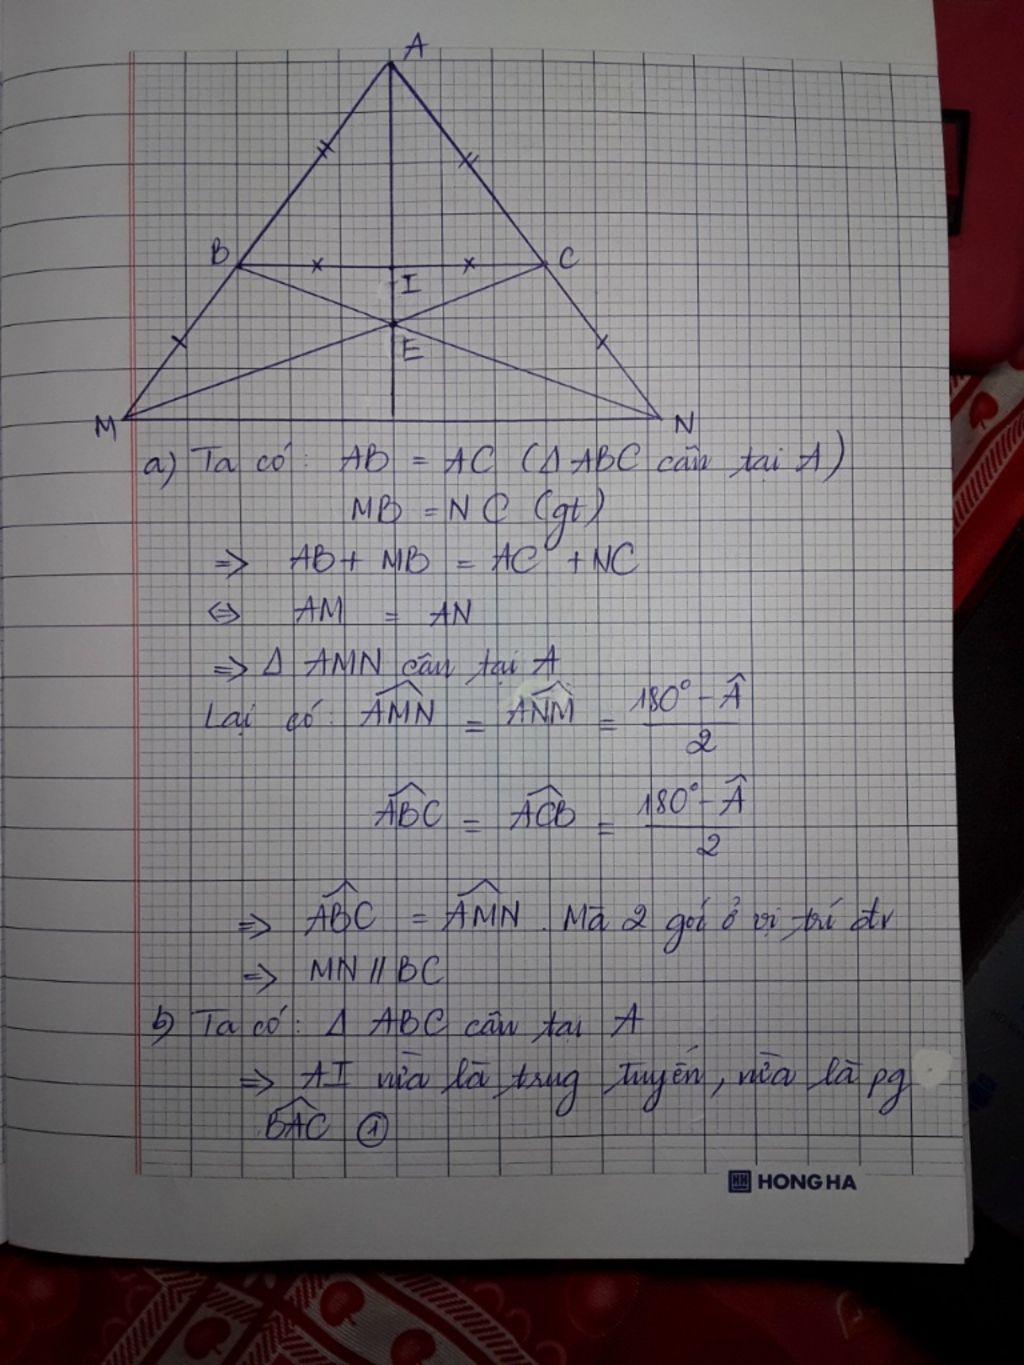 A
B
C
I
E
M
N
a) Ta có: AB = AC (Δ ABC cân tại A)
MB = NC (gt)
=> AB + MB = AC + NC
<=> AM = AN
=> Δ AMN cân tại A
Lại có: \widehat{AMN} = \widehat{ANM} = \frac{180° - \hat{A}}{2}
\widehat{ABC} = \widehat{ACB} = \frac{180° - \hat{A}}{2}
=> \widehat{ABC} = \widehat{AMN}. Mà 2 gói ở vị trí đv
=> MN // BC
b) Ta có: Δ ABC cân tại A
=> AI nừa là trug tuyến, nừa là pg
\widehat{BAC} ①
HONG HA